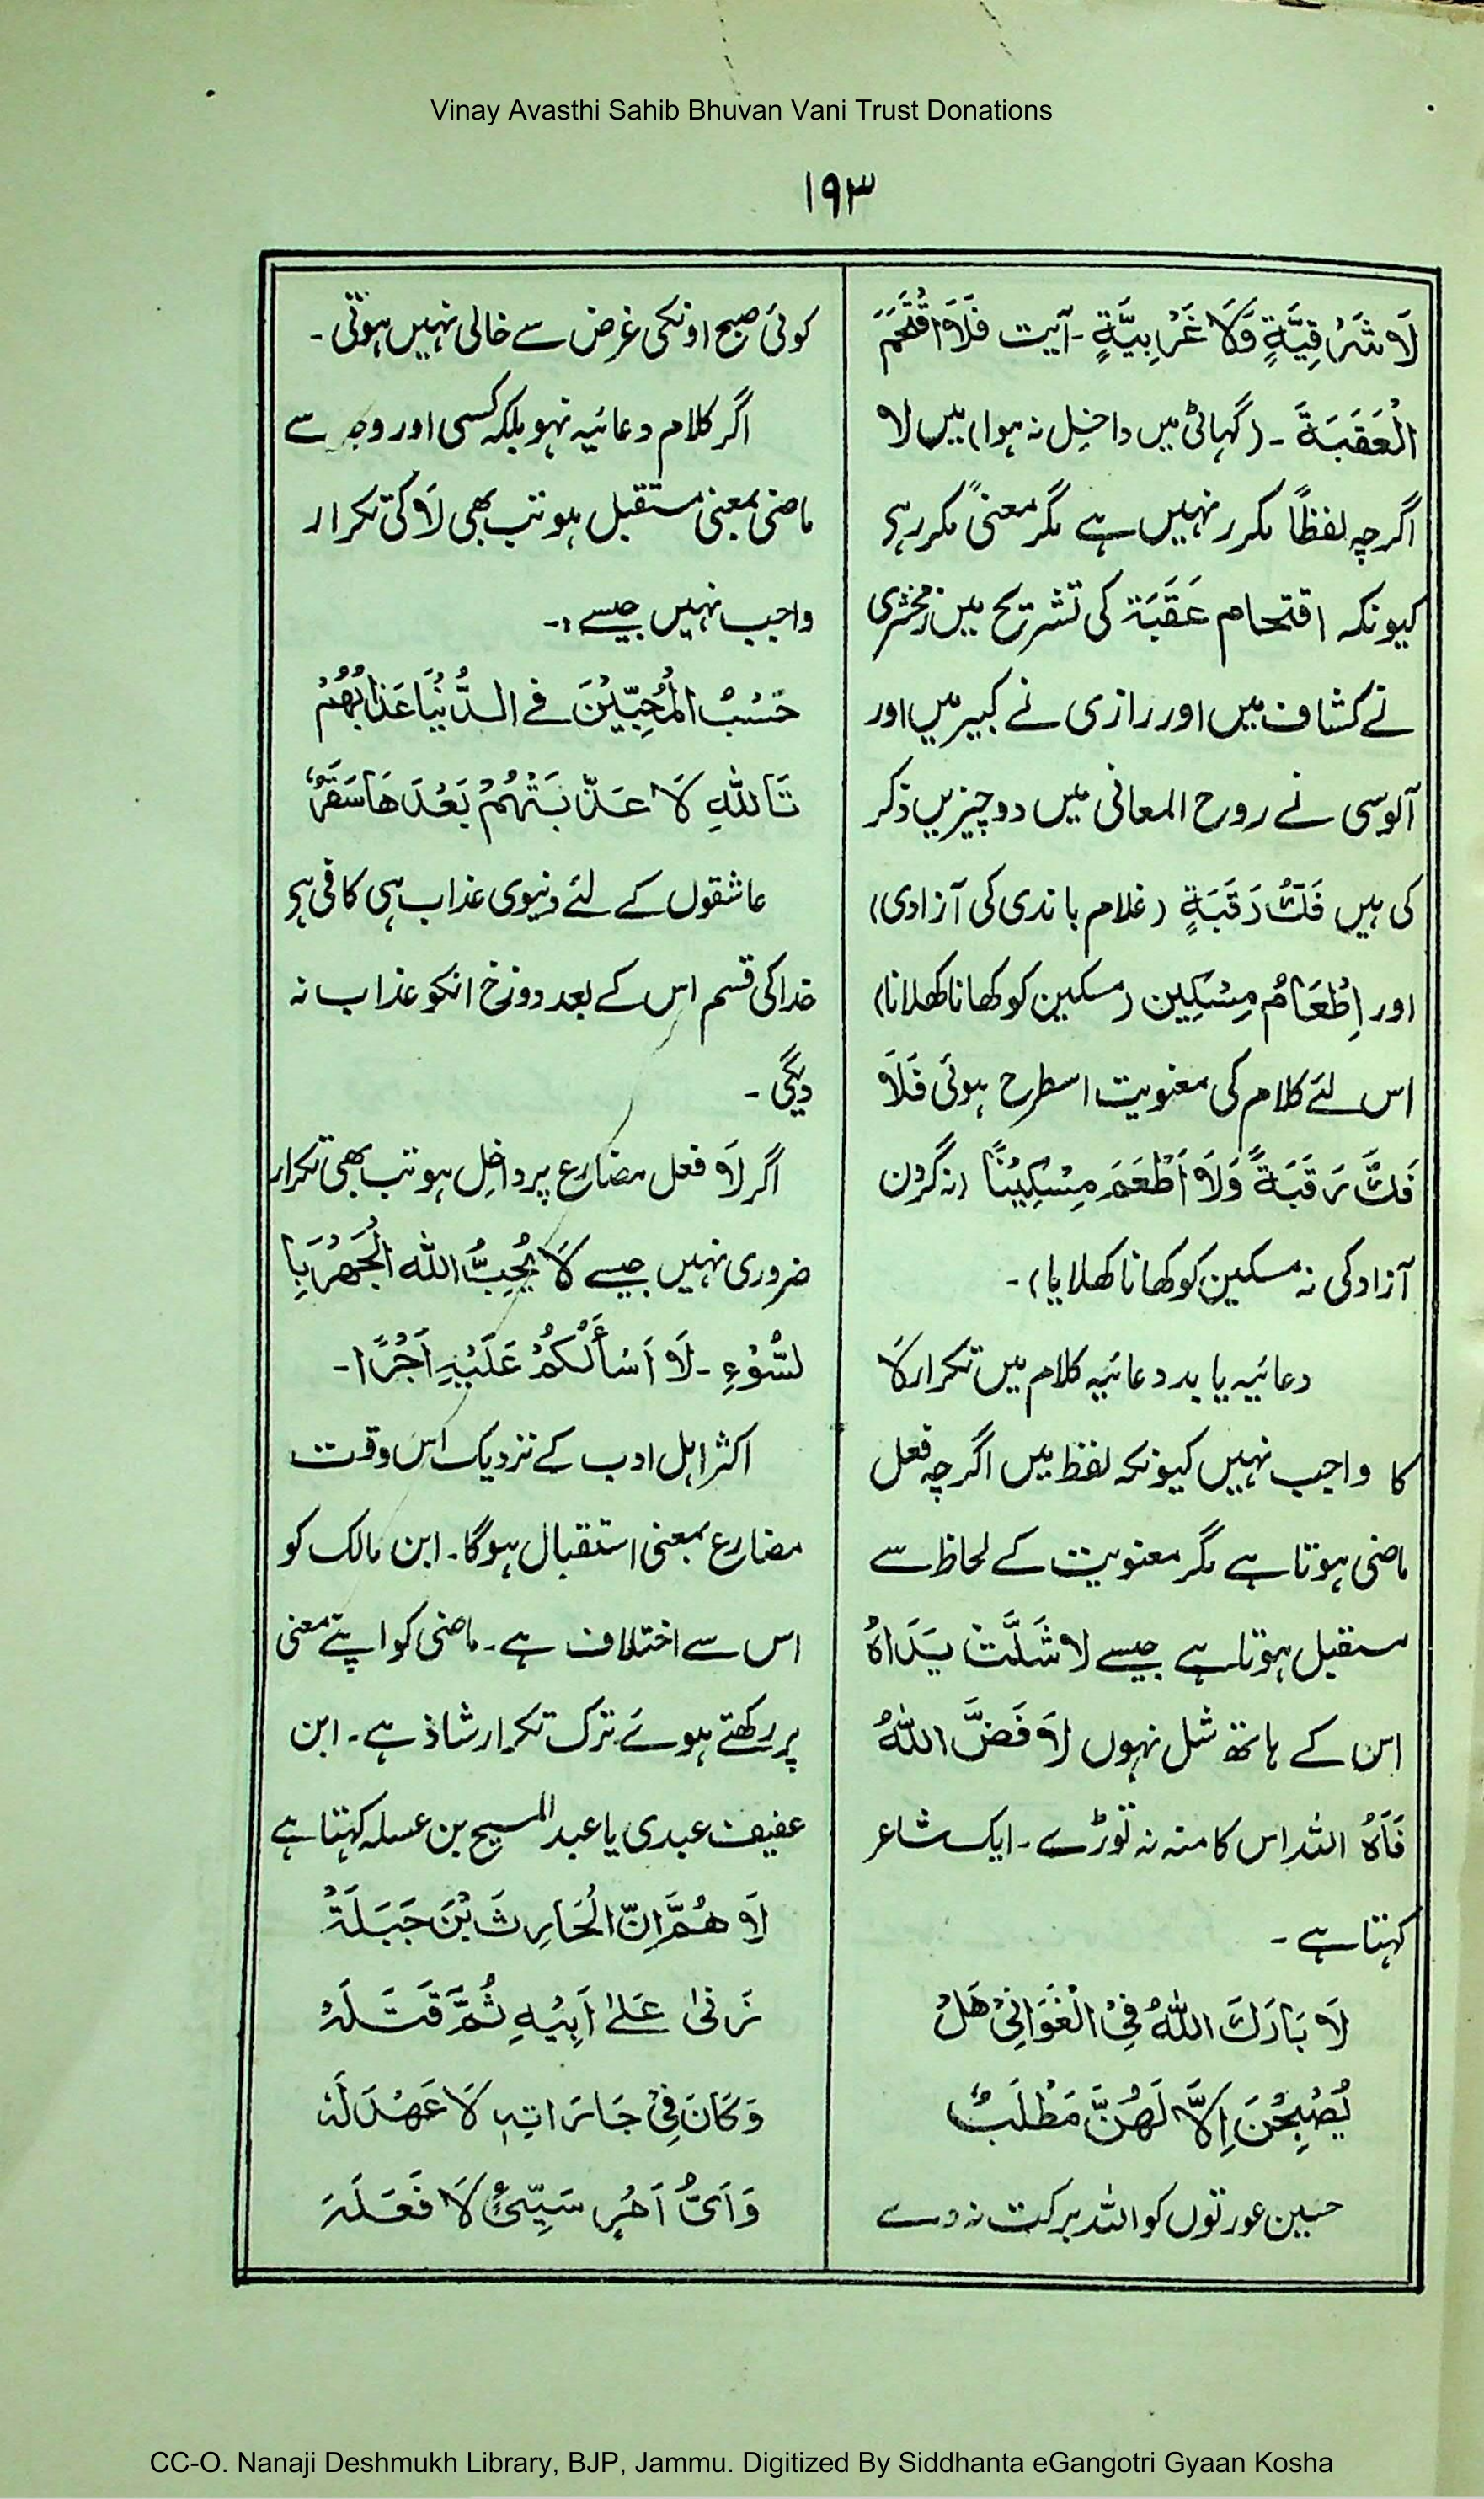 Vinay Avasthi Sahib Bhuvan Vani Trust Donations
۱۹۳
لَا شَرْقِيَّةٍ وَّلَا غَرْبِيَّةٍ۔ آیت فَلَا اقْتَحَمَ
الْعَقَبَةَ ۔ (گہاٹی میں داخل نہ ہوا) میں لا
اگرچہ لفظاً مکرر نہیں ہے مگر معنیً مکرر ہی
کیونکہ اقتحام عَقَبَۃ کی تشریح میں زمخشری
نے کشاف میں اور رازی نے کبیر میں اور
آلوسی نے روح المعانی میں دو چیزیں ذکر
کی ہیں فَكُّ رَقَبَةٍ (غلام باندی کی آزادی)
اور اِطْعَامُ مِسْكِين (مسکین کو کھانا کھلانا)
اس لئے کلام کی معنویت اسطرح ہوئی فَلَا
فَكَّ رَقَبَةً وَلَا أَطْعَمَ مِسْكِيْنًا (نہ گردن
آزاد کی نہ مسکین کو کھانا کھلایا)۔
دعائیہ یا بددعائیہ کلام میں تکرار لَا
کا واجب نہیں کیونکہ لفظ میں اگرچہ فعل
ماضی ہوتا ہے مگر معنویت کے لحاظ سے
مستقبل ہوتا ہے جیسے لا شَلَّتْ يَدَاهُ
اس کے ہاتھ شل نہوں لَا فَضَّ اللّٰهُ
فَاهُ اللہ اس کا منہ نہ توڑے۔ ایک شاعر
کہتا ہے ۔
لَا بَارَكَ اللّٰهُ فِي الْغَوَانِيْ هَلْ
يُصْبِحْنَ اِلَّا لَهُنَّ مَطْلَبُ
حسین عورتوں کو اللہ برکت نہ دے
کوئی صبح اونکی غرض سے خالی نہیں ہوتی ۔
اگر کلام دعائیہ نہو بلکہ کسی اور وجہ سے
ماضی بمعنی مستقبل ہو تب بھی لَا کی تکرار
واجب نہیں جیسے :۔
حَسْبُ الْمُحِبِّيْنَ فے الدُّنْيَا عَذَابُهُمْ
تَاللّٰهِ لَا عَذَّبَتْهُمْ بَعْدَهَا سَقَرُ
عاشقوں کے لئے دنیوی عذاب ہی کافی ہی
خدا کی قسم اس کے بعد دوزخ انکو عذاب نہ
دیگی ۔
اگر لَا فعل مضارع پر داخل ہو تب بھی تکرار
ضروری نہیں جیسے لَا يُحِبُّ اللّٰه الْجَهْرَ بِا
لسُّوْءِ ۔ لَا اَسْأَلُكُمْ عَلَيْهِ اَجْرًا ۔
اکثر اہل ادب کے نزدیک اس وقت
مضارع بمعنی استقبال ہوگا۔ ابن مالک کو
اس سے اختلاف ہے۔ ماضی کو اپنے معنی
پر رکھتے ہوئے ترک تکرار شاذ ہے۔ ابن
عفیف عبدی یا عبد المسیح بن عسلہ کہتا ہے
لَا هُمَّ اِنَّ الْحَارِثَ بْنَ جَبَلَةْ
زَنٰى عَلٰے اَبِيْهِ ثُمَّ قَتَلَهْ
وَكَانَ فِيْ جَارَاتِهٖ لَا عَهْدَ لَهْ
وَاَىُّ اَمْرٍ سَيِّئٍ لَا فَعَلَهْ
CC-O. Nanaji Deshmukh Library, BJP, Jammu. Digitized By Siddhanta eGangotri Gyaan Kosha